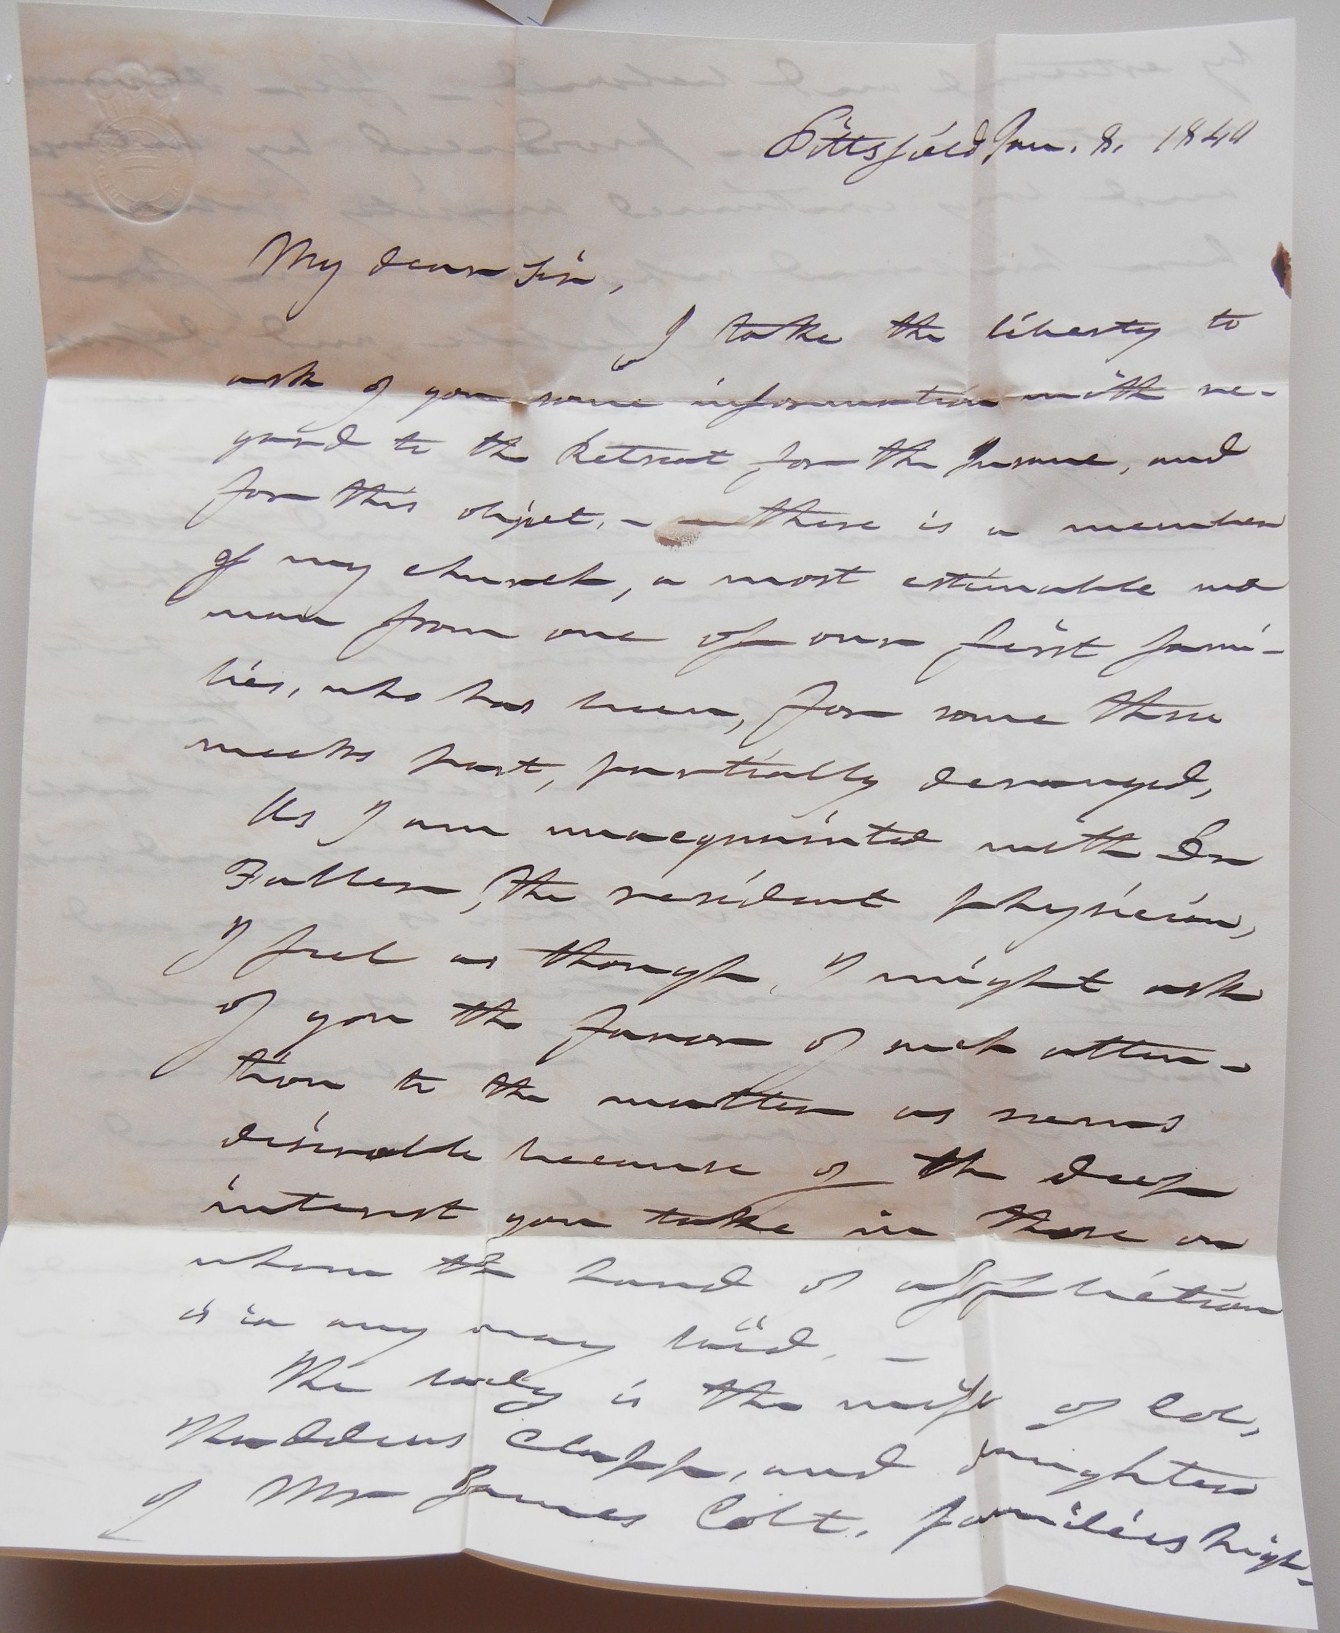 Pittsfield Jan. 8. 1840
My dear Sir,
I take the liberty to
ask of you some information with re-
gard to the Retreat for the Insane, and
for this object. - there is a member
of my church, a most estimable wo
man from one of our first fami-
lies, who has been, for some three
weeks past, partially deranged,
As I am unacquainted with Dr
Fuller, the resident physician,
I feel as though I might ask
of you the favor of such atten-
tion to the matter as seems
desirable because of the deep
interest you take in those on
whom the hand of affliction
is in any way laid. -
The lady is the wife of Col,
Thaddeus Clapp, and daughter
of Mr James Colt. families high-